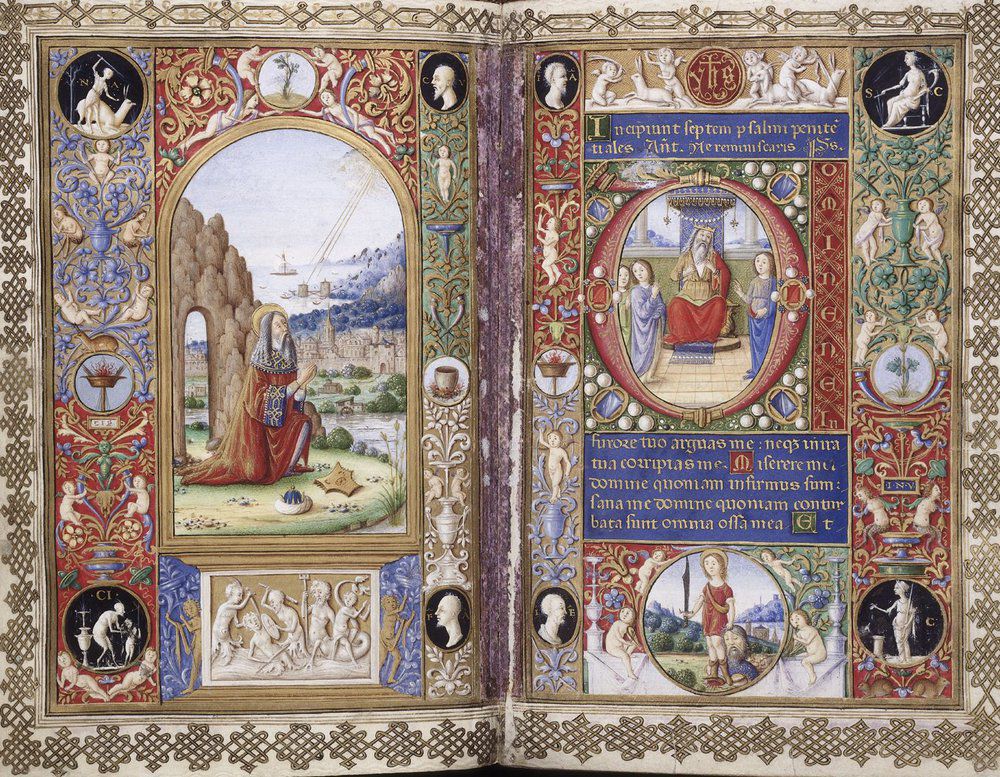 yhs
Incipiunt septem psalmi penitē
tiales Añt. Ne reminiscaris Ps.
DOMINE NE IN
furore tuo arguas me: neqꝫ in ira
tua corripias me. Miserere mei
domine quoniam infirmus sum:
sana me domine quoniam contur
bata sunt omnia ossa mea Et
S C
I·N·V
·CI·